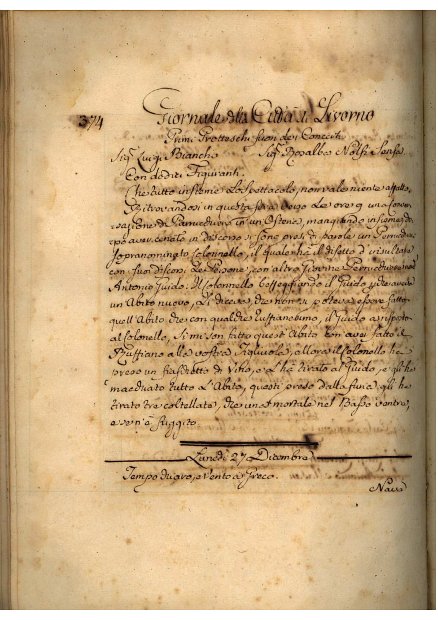 374
Giornale della Città di Livorno
Primi Grotteschi fuori de i Concerti
Sig. Luigi Bianchi Sig. Rosalba
Con dodici Figuranti.
Che tutto insieme Lo Spettacolo, non vale niente affatto,
Ritrovandosi in questa sera verso Le ore 4 una Conver
sazione di in un Osteria, mangiando insieme, do
po aver cenato in discorso si sono presi di parole un
sopranominato Colonnello, il quale ha il difetto d'insultare
con suoi discorsi Le Persone, con altro Giovine
Antonio Guido, Il Colonnello il Guido, che aveva
un Abito nuovo, Li diceva, che non si poteva esser fatto
quell'Abito che con qualche il Guido à risposto
al Colonello, Si mi son fatto quest'Abito con aver fatto il
Ruffiano alla vostra Figliuola, allora il Colonello ha
preso un fiaschetto di Vino, e L'ha tirato al Guido, e gli ha
macchiato tutto L'Abito, questi preso dalla furia gli ha
tirato tre coltellate, che una mortale nel Basso ventre,
e se n'è fuggito.
Lunedì 27 Dicembre
Tempo chiaro, e Vento a Greco.
Navi